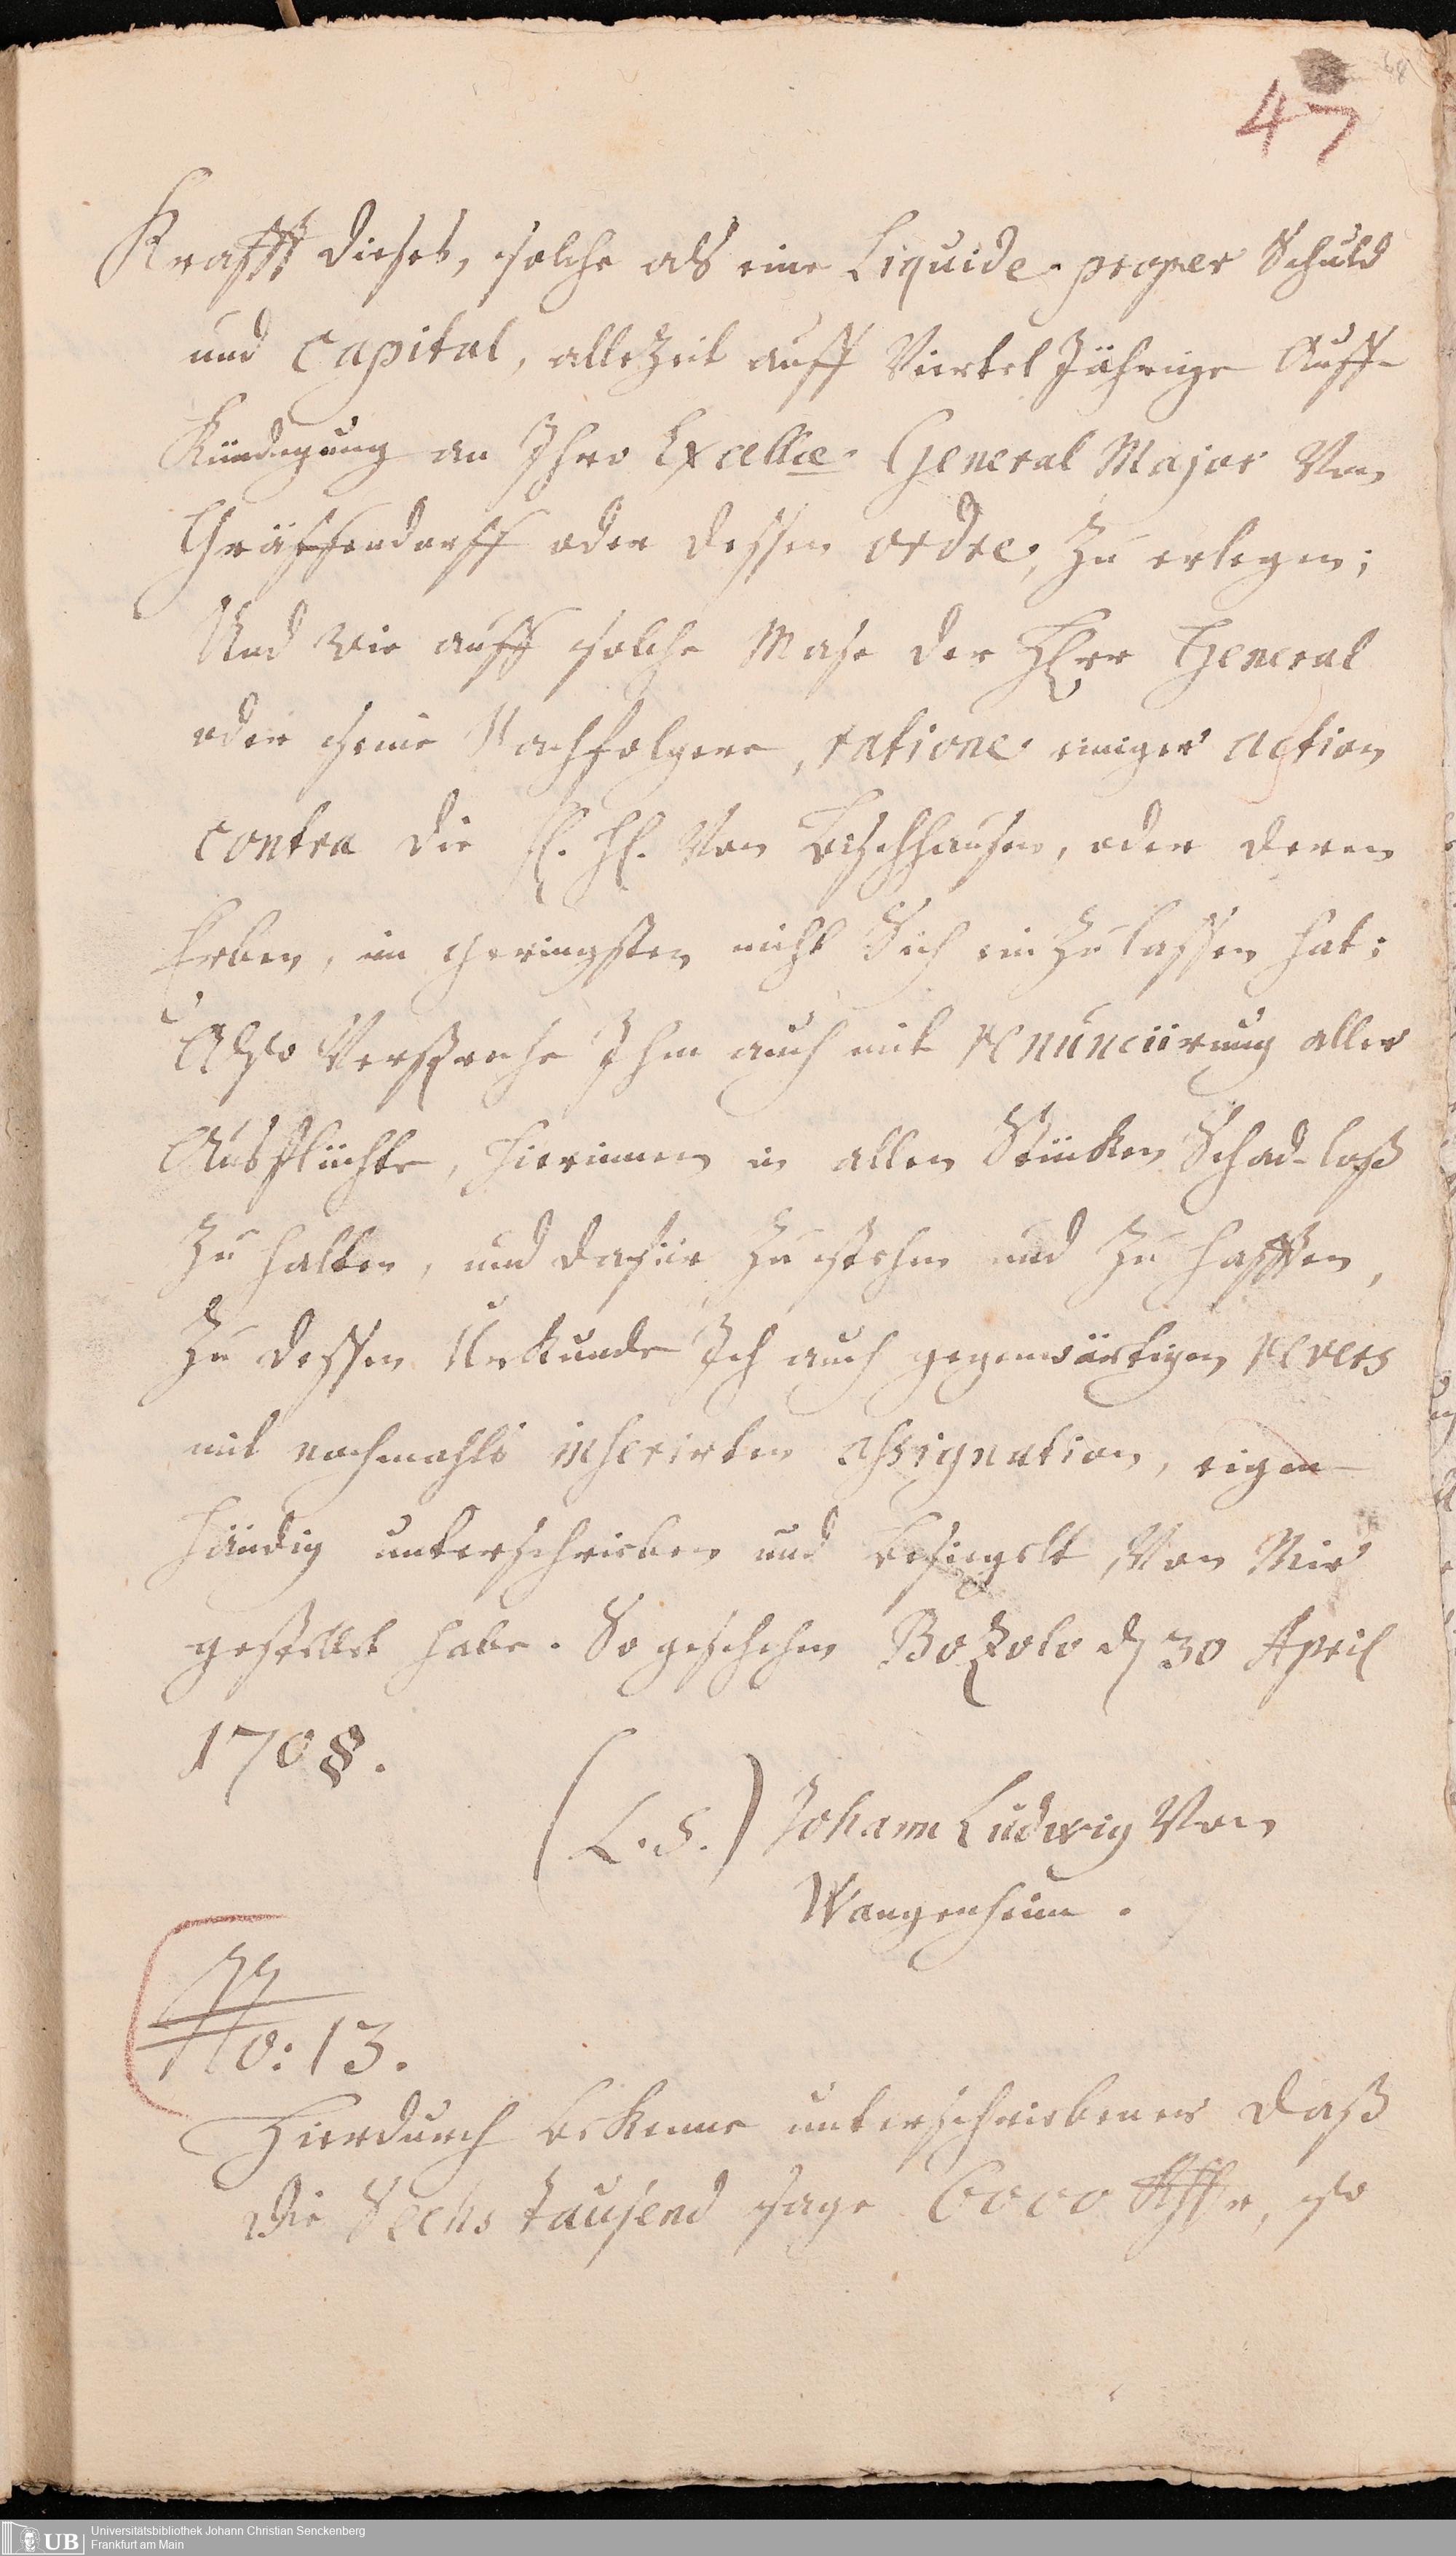 68
47
Krafft dieses, solche als eine Liquide proper Schuld
und Capital, allezeit auff Viertel Jährige Auff-
Kündigung an Ihro Excellce General Major Von
Gräffendorff oder dessen ordre, zu erlegen;
Und wie auff solche Mase der Herr General
oder seine Nachfolgere, ratione einiger action
contra die H. H. Von Bischhausen, oder deren
Erben, im geringsten nicht Sich ein zu lassen hat;
Also Verspreche Ihm auch mit renunciirung aller
Ausflüchte, hierinnen in allen Stücken Schad-loß
zu halten, und dafür zu stehen und zu hafften,
Zu dessen Urkunde Ich auch gegenwärtigen revers
mit nochmahls inserirten assignation, eigen
händig unterschrieben und besiegelt, Von Mir
gestellet habe. So geschehen Bozzolo d 30 April
1708.
(L.S.) Johann Ludwig Von
Wangenheim.
No: 13.
Hierdurch bekenne unterschriebener daß
die Sechs tausend sage 6000 Rthlr, so
Universitätsbibliothek Johann Christian Senckenberg
UB Frankfurt am Main